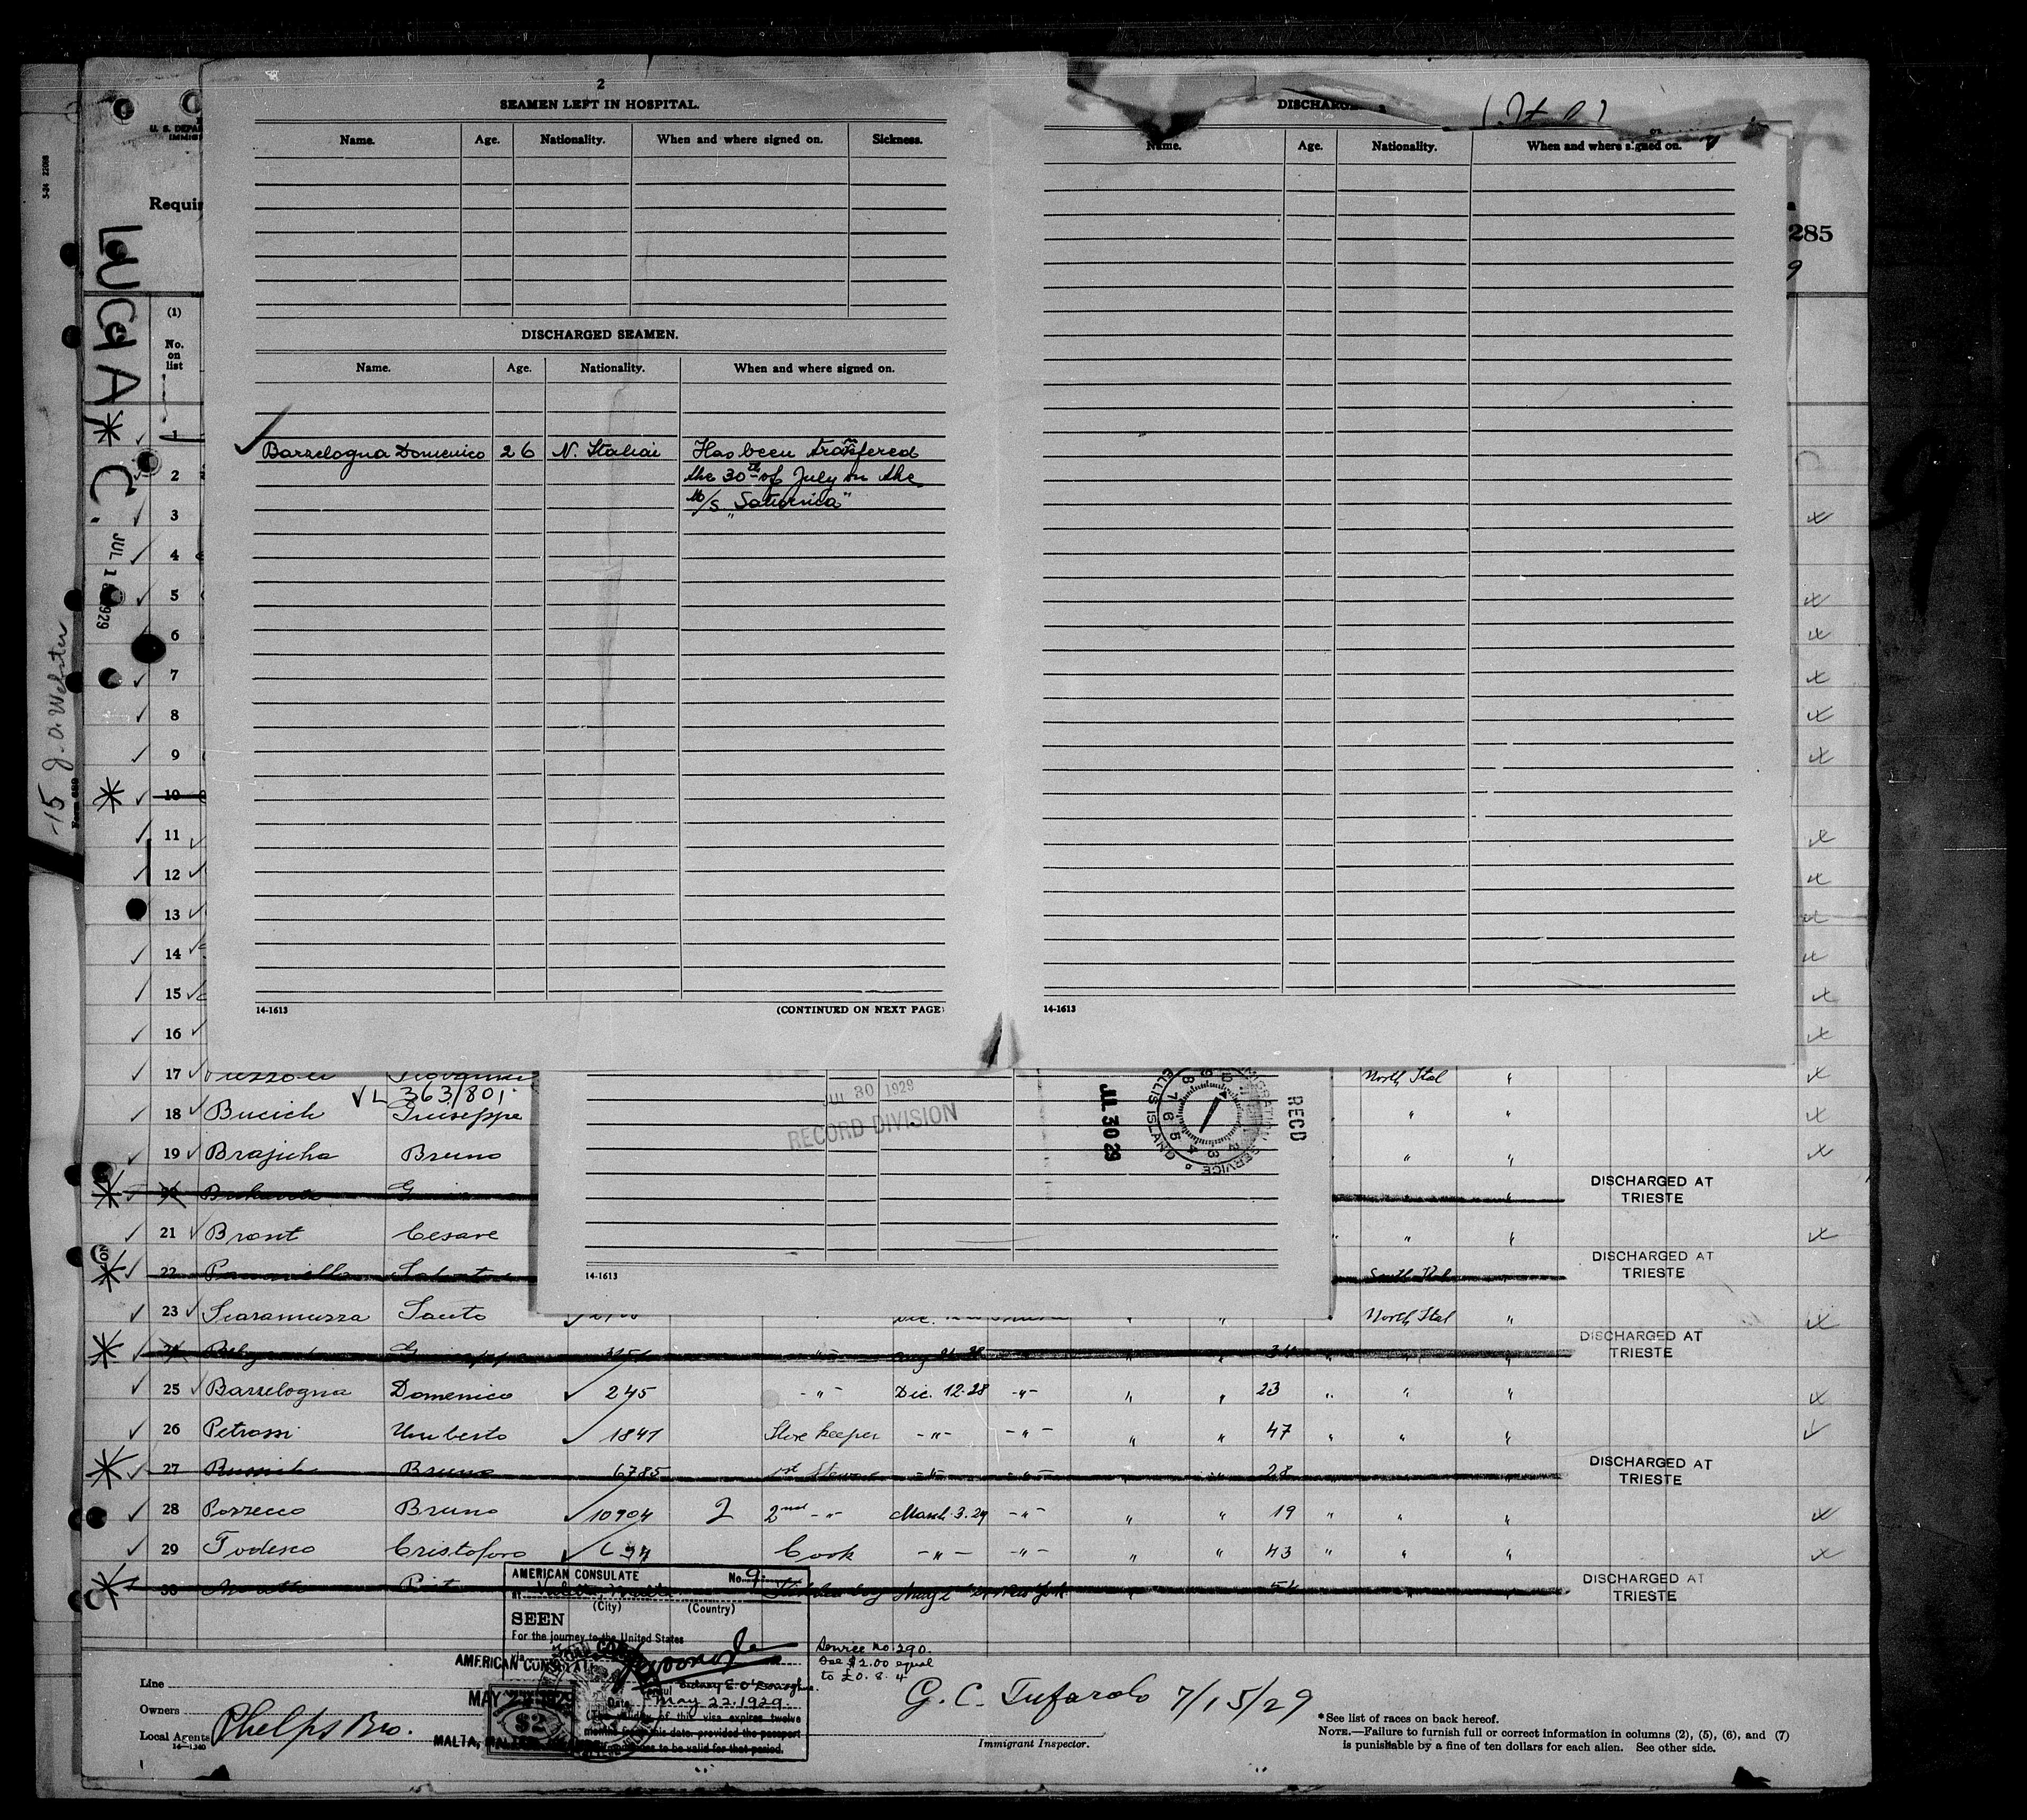 2
SEAMEN LEFT IN HOSPITAL.
Name. Age. Nationality. When and where signed on. Sickness.
DISCHARGED SEAMEN.
Name. Age. Nationality. When and where signed on.
Barzelogna Domenico 26 N. Italiai Has been transfered
the 30th of July on the
M/s "Saturnia"
14-1613 (CONTINUED ON NEXT PAGE)
Name. Age. Nationality. When and where signed on.
14-1613
5-24 22088
U. S. DEPA
IMMIG
Requir
285
9
LUCIA * C.
JUL 1 1929
-15 J. A. Webster
Form 689
(1)
No.
on
list
1
2
3
4
5
6
7
8
9
10
11
12
13
14
15
16
17 North Ital "
L 363/801
18 Bucich Giuseppe " "
19 Brajicha Bruno " "
20 DISCHARGED AT
TRIESTE
21 Bront Cesare " "
22 South Ital DISCHARGED AT
TRIESTE
23 Scaramuzza Santo North Ital "
DISCHARGED AT
TRIESTE
25 Barzelogna Domenico 245 -"- Dic. 12-28 -"- " " 23 " " "
26 Petrossi Umberto 1847 Store keeper -"- -"- " " 47 " " "
27 Bruno 6785 1st Steward -"- -"- 28 DISCHARGED AT
TRIESTE
28 Pozzecco Bruno 10904 2 2nd -"- March 3.29 -"- " " 19 " " "
29 Todesco Cristoforo Cook -"- -"- " " 43 " " "
30 DISCHARGED AT
TRIESTE
JUL 30 1929
RECORD DIVISION
JUL 30 29
IMMIGRATION SERVICE
ELLIS ISLAND
RECD
14-1613
AMERICAN CONSULATE No. 9
At Valletta, Malta
(City) (Country)
SEEN
For the journey to the United States
AMERICAN CONSULATE
MAY 22 1929
Date May 22. 1929.
(The validity of this visa expires twelve
months from this date, provided the passport
continues to be valid for that period.
$2
MALTA,
Service No. 290.
Fee $2.00 equal
to £0. 8. 4
Line
Owners
Local Agents Phelps Bro.
16-1240
G. C. Tufarolo 7/15/29
Immigrant Inspector.
*See list of races on back hereof.
NOTE.—Failure to furnish full or correct information in columns (2), (5), (6), and (7)
is punishable by a fine of ten dollars for each alien. See other side.